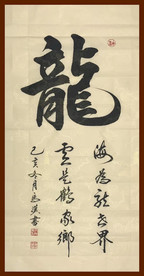 龍
海為龍世界
雲是鶴家鄉
己亥冬月
書